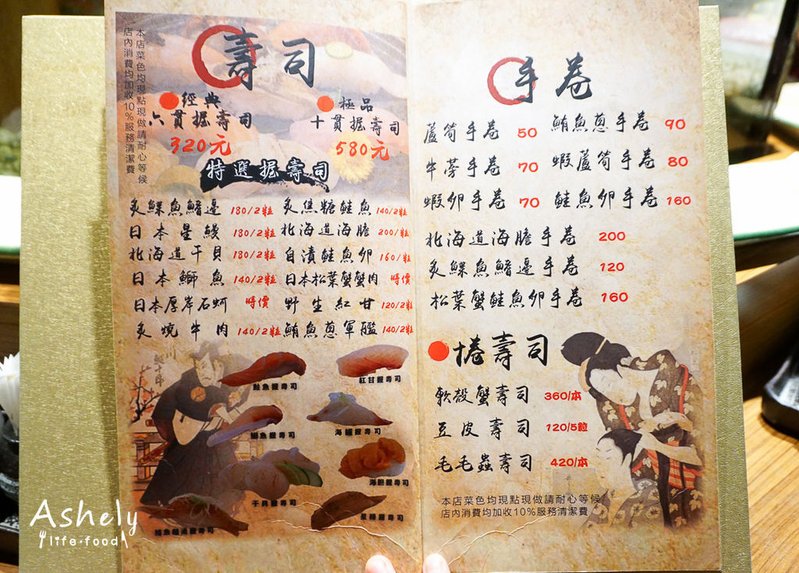 壽司
經典
六貫握壽司
320元
極品
十貫握壽司
580元
本店菜色均現點現做請耐心等候
店內消費均加收10%服務清潔費
特選握壽司
炙鰈魚鰭邊 130/2粒
日本星鰻 130/2粒
北海道干貝 180/2粒
日本鰤魚 140/2粒
日本厚岸石蚵 時價
炙燒牛肉 140/2粒
炙焦糖鮭魚 140/2粒
北海道海膽 200/粒
自漬鮭魚卵 160/粒
日本松葉蟹蟹肉 時價
野生紅甘 120/2粒
鮪魚蔥軍艦 140/2粒
鮭魚握壽司
紅甘握壽司
鯛魚握壽司
海鱺握壽司
干貝握壽司
手卷
蘆筍手卷 50
鮪魚蔥手卷 90
牛蒡手卷 70
蝦蘆筍手卷 80
蝦卵手卷 70
鮭魚卵手卷 160
北海道海膽手卷 200
炙鰈魚鰭邊手卷 120
松葉蟹鮭魚卵手卷 160
捲壽司
軟殼蟹壽司 360/本
豆皮壽司 120/5粒
毛毛蟲壽司 420/本
本店菜色均現點現做請耐心等候
店內消費均加收10%服務清潔費
Ashely
life·food